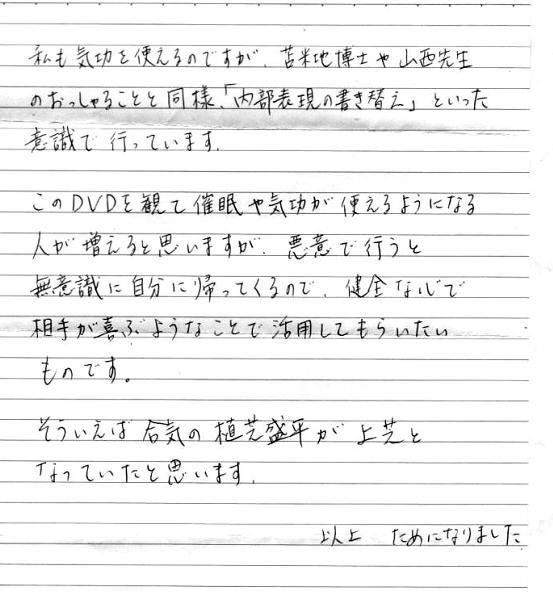 私も気功を使えるのですが、苫米地博士や山西先生
のおっしゃることと同様、「内部表現の書き替え」といった
意識で行っています。
このDVDを観て催眠や気功が使えるようになる
人が増えると思いますが、悪意で行うと
無意識に自分に帰ってくるので、健全な心で
相手が喜ぶようなことで活用してもらいたい
ものです。
そういえば合気の植芝盛平が上芝と
なっていたと思います。
以上 ためになりました